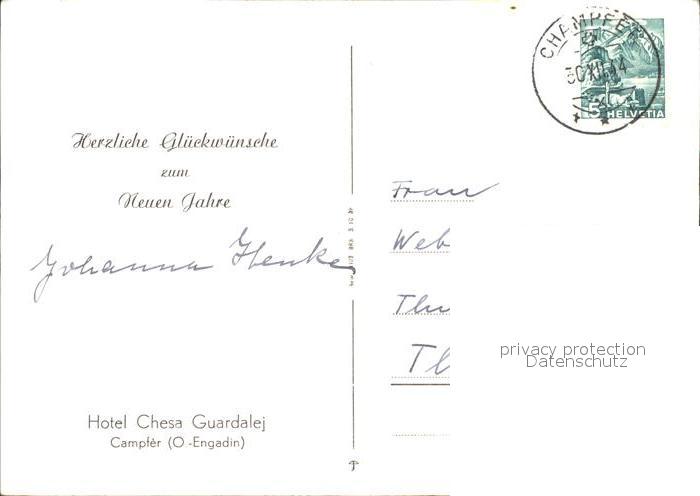 Herzliche Glückwünsche
zum
Neuen Jahre
Johanna Henke
Hotel Chesa Guardalej
Campfèr (O.-Engadin)
CHAMPFER
30.XII.44
5 HELVETIA
Frau
Web
Thu
Tl
privacy protection
Datenschutz